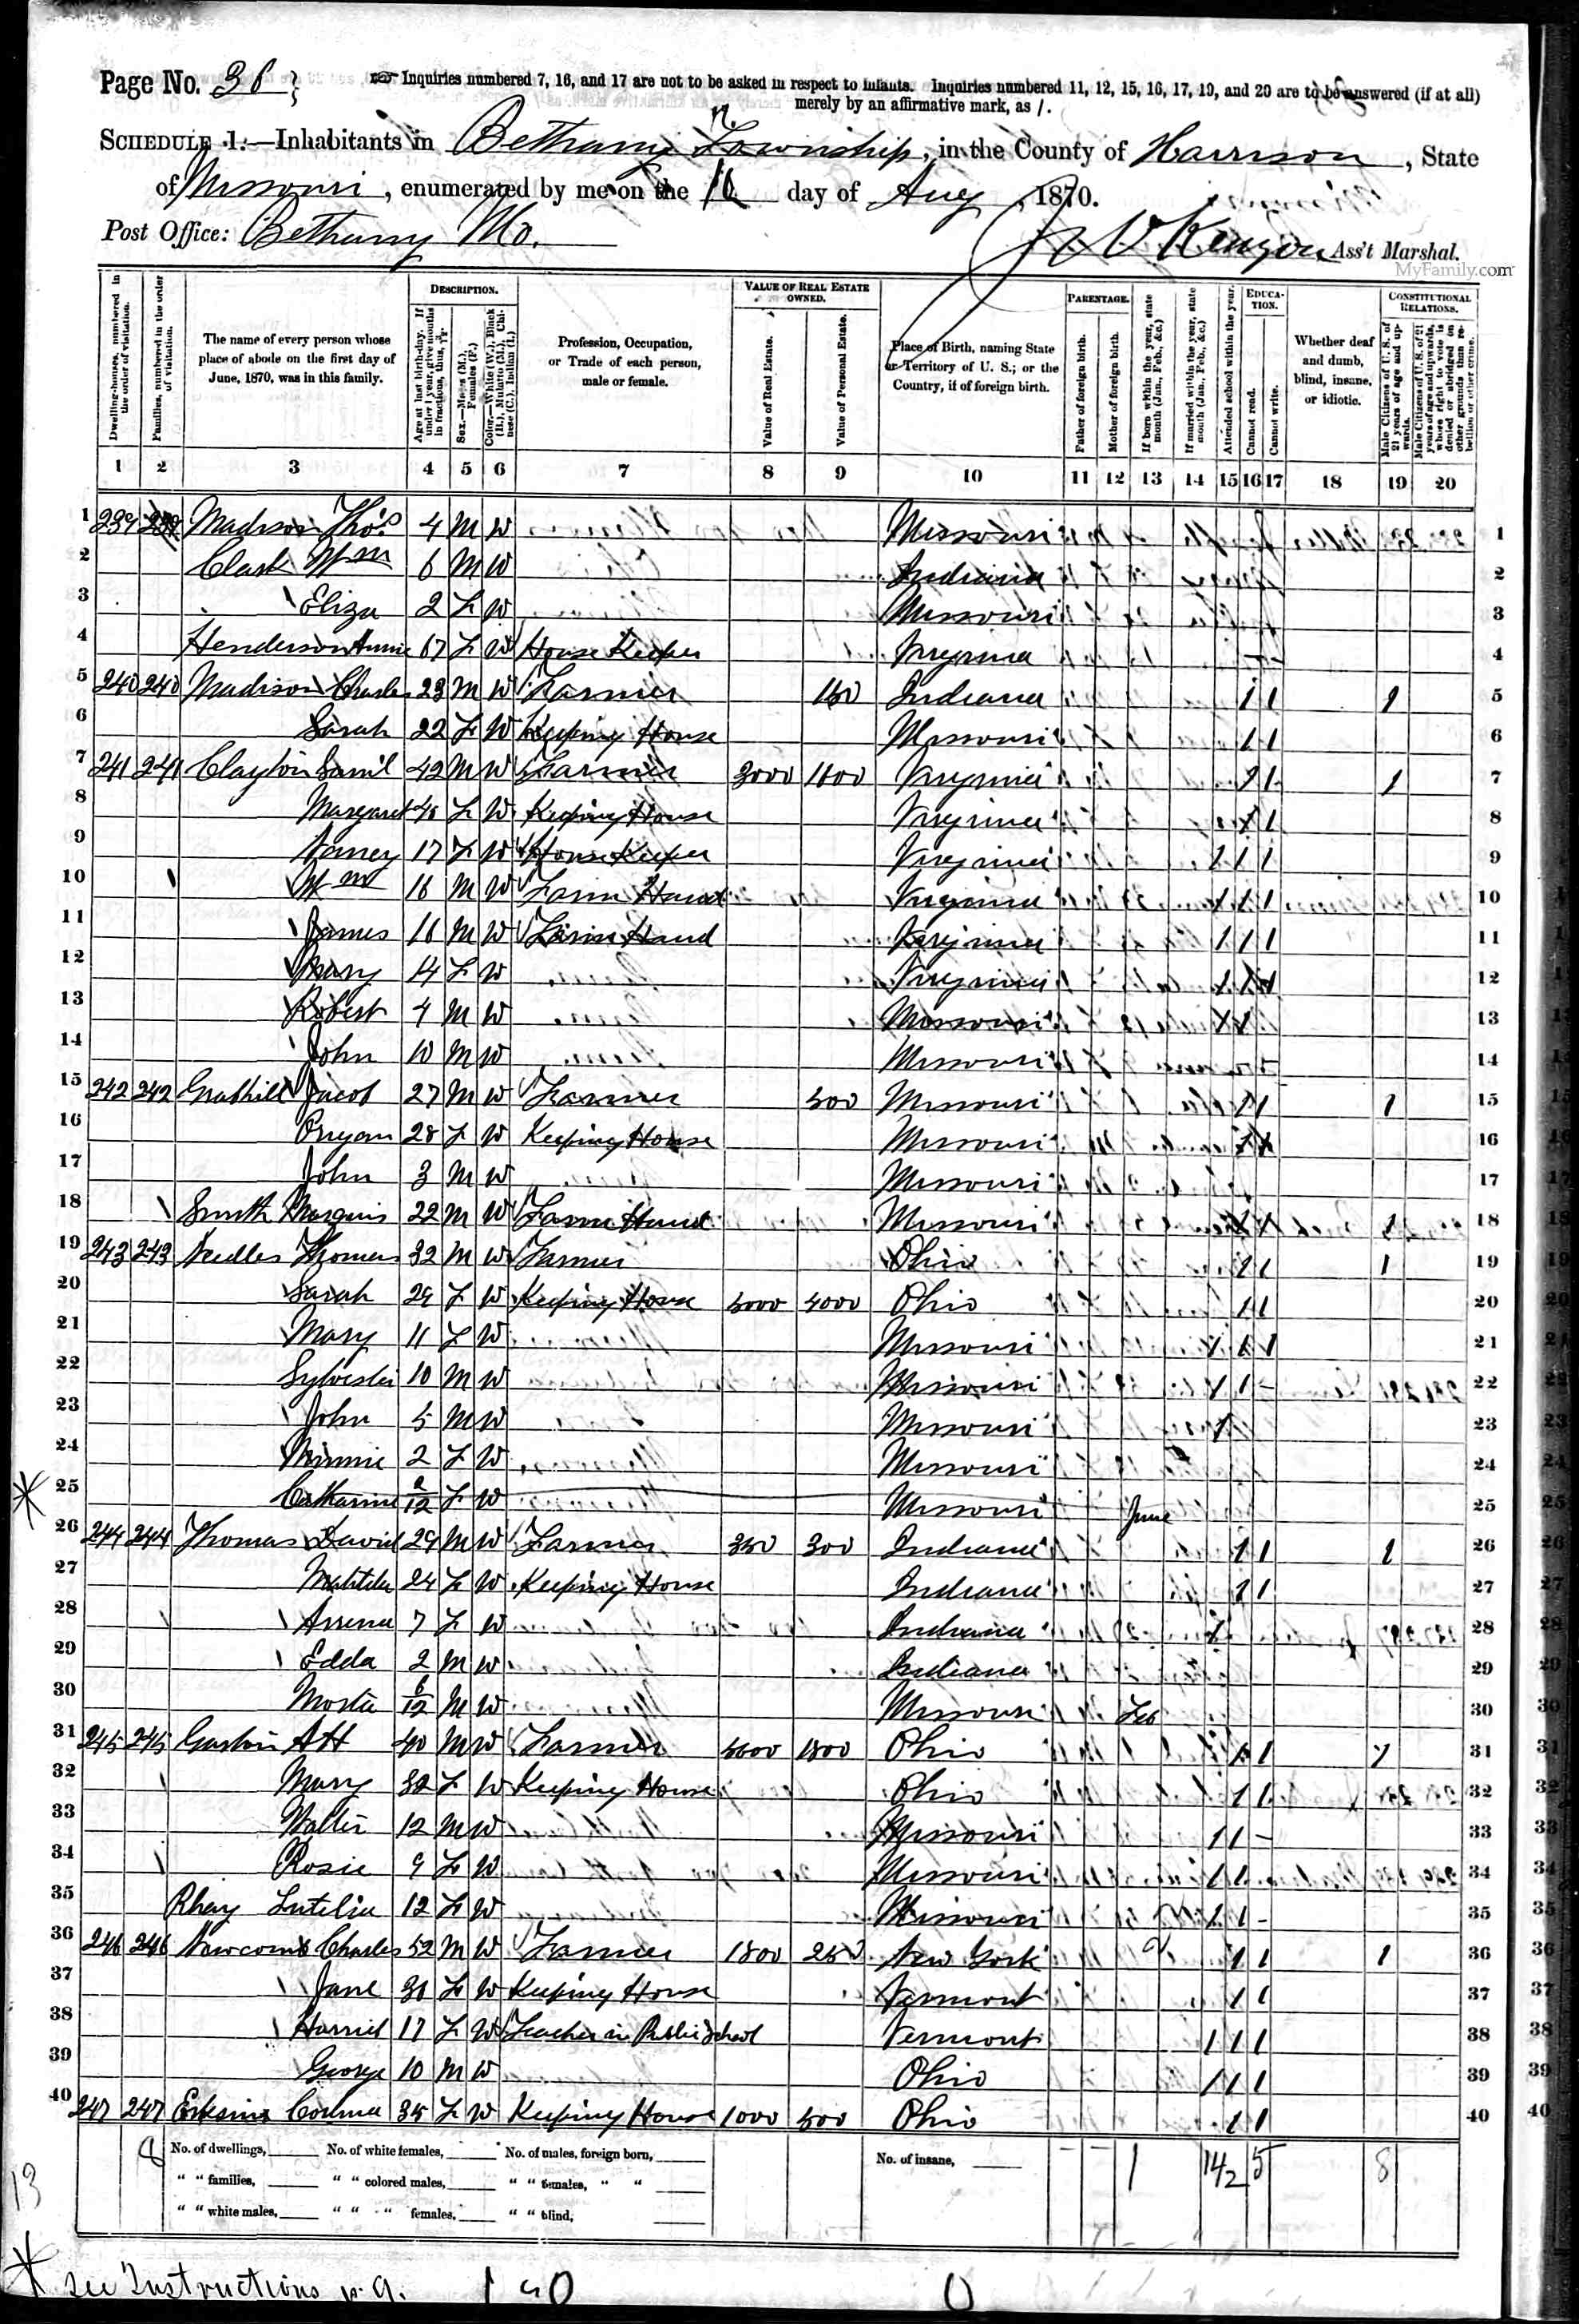 Page No. 36 Inquiries numbered 7, 16, and 17 are not to be asked in respect to infants. Inquiries numbered 11, 12, 15, 16, 17, 19, and 20 are to be answered (if at all)
merely by an affirmative mark, as /.
SCHEDULE 1.—Inhabitants in Bethany Township, in the County of Harrison, State
of Missouri, enumerated by me on the day of Aug, 1870.
Post Office: Bethany Mo. Kenyon Ass't Marshal.
MyFamily.com
Dwelling-houses, numbered in the order of visitation.
Families, numbered in the order of visitation.
The name of every person whose place of abode on the first day of June, 1870, was in this family.
DESCRIPTION.
Age at last birth-day. If under 1 year, give months in fractions, thus,
Sex.—Males (M.), Females (F.)
Color.—White (W.), Black (B.), Mulatto (M.), Chinese (C.), Indian (I.)
Profession, Occupation, or Trade of each person, male or female.
VALUE OF REAL ESTATE OWNED.
Value of Real Estate.
Value of Personal Estate.
Place of Birth, naming State or Territory of U. S.; or the Country, if of foreign birth.
PARENTAGE.
Father of foreign birth.
Mother of foreign birth.
If born within the year, state month (Jan., Feb., &c.)
If married within the year, state month (Jan., Feb., &c.)
Attended school within the year.
EDUCATION.
Cannot read.
Cannot write.
Whether deaf and dumb, blind, insane, or idiotic.
CONSTITUTIONAL RELATIONS.
Male Citizens of U. S. of 21 years of age and upwards.
Male Citizens of U. S. of 21 years of age and upwards, whose right to vote is denied or abridged on other grounds than rebellion or other crime.
1 2 3 4 5 6 7 8 9 10 11 12 13 14 15 16 17 18 19 20
1 239 239 Madison Thos 4 M W Missouri 1
2 Clark Wm 6 M W Indiana 2
3 Eliza 2 F W Missouri 3
4 Henderson Annie 67 F W House Keeper Virginia 4
5 240 240 Madison Charles 23 M W Farmer 150 Indiana 1 1 1 5
6 Sarah 22 F W Keeping House Missouri 1 1 6
7 241 241 Clayton Saml 42 M W Farmer 3000 1600 Virginia 1 1 1 7
8 Margaret F W Keeping House Virginia 1 8
9 Nancy 17 F W House Keeper Virginia 1 1 1 9
10 Wm 16 M W Farm Hand Virginia 1 1 1 10
11 James 16 M W Farm Hand Virginia 1 1 1 11
12 Mary 14 F W Virginia 12
13 Robert 4 M W Missouri 13
14 John 10 M W Missouri 14
15 242 242 Jacob 27 M W Farmer 500 Missouri 1 1 1 15
16 28 F W Keeping House Missouri 16
17 John 3 M W Missouri 17
18 Smith Marquis 22 M W Farm Hand Missouri 18
19 243 243 Needles Thomas 32 M W Farmer Ohio 1 1 1 19
20 Sarah 29 F W Keeping House 5000 4000 Ohio 1 1 20
21 Mary 11 F W Missouri 1 1 1 21
22 Sylvester 10 M W Missouri 1 1 - 22
23 John 5 M W Missouri 1 23
24 Minnie 2 F W Missouri 24
25 Catharine 2/12 F W Missouri June 25
26 244 244 Thomas David 29 M W Farmer 350 300 Indiana 1 1 1 26
27 Matilda 24 F W Keeping House Indiana 1 1 27
28 7 F W Indiana 28
29 Edda 2 M W Indiana 29
30 6/12 M W Missouri Feb 30
31 245 245 Gaston 40 M W Farmer 5000 1800 Ohio 1 1 1 31
32 Mary 32 F W Keeping House Ohio 1 1 32
33 Walter 12 M W Missouri 1 1 - 33
34 Rosie 9 F W Missouri 1 1 34
35 Rhay 12 F W Missouri 1 1 - 35
36 246 246 Newcomb Charles 52 M W Farmer 1800 250 New York 1 1 1 36
37 Jane 30 F W Keeping House Vermont 1 1 37
38 Harriet 17 F W Teacher in Public School Vermont 1 1 1 38
39 George 10 M W Ohio 1 1 1 39
40 247 247 35 F W Keeping House 1000 500 Ohio 1 1 40
8 No. of dwellings, No. of white females, No. of males, foreign born, No. of insane, 1 14/2 5 8
" " families, " " colored males, " " females, " "
" " white males, " " " females, " " blind,
13
* see Instructions p. 9.